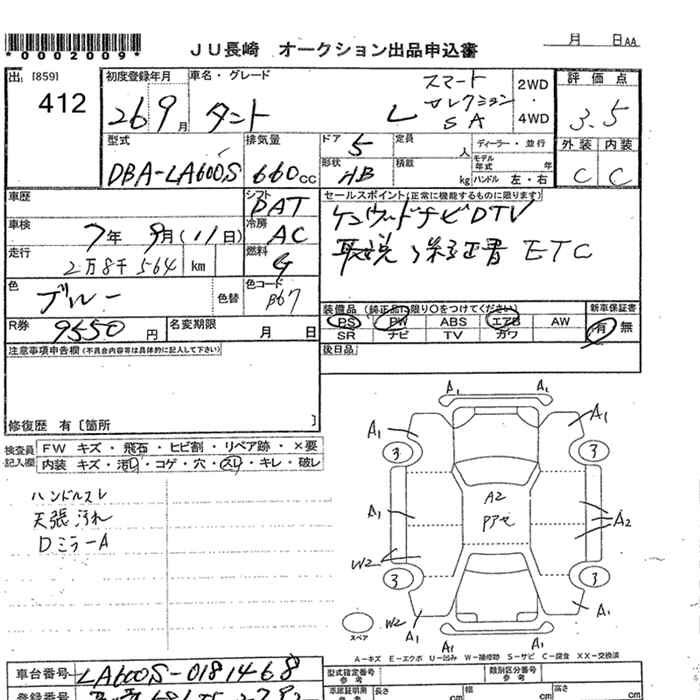 *0002009*
JU長崎 オークション出品申込書
月 日AA
出. [859]
412
初度登録年月
26 9月
車名・グレード
タント L スマート セレクション SA
2WD ・ 4WD
評価点
3.5
外装 内装
C C
型式
DBA-LA600S
排気量
660cc
ドア 5
形状 HB
定員 人
積載 kg
ディーラー・並行
モデル年式 年
ハンドル 左・右
車歴
シフト PAT
車検 7年 9月(11日)
冷房 AC
走行 2万8千564 km
燃料 G
色 ブルー
色替
色コード B67
R券 9550円
名変期限 月 日
セールスポイント(正常に機能するものに限ります)
ケンウッドナビDTV
取説、保証書 ETC
装備品(純正品に限り○をつけてください)
PS PW ABS エアB AW
SR ナビ TV カワ
新車保証書
有 無
後日品
注意事項申告欄(不具合内容等は具体的に記入して下さい)
修復歴 有〔箇所 〕
検査員記入欄
FW キズ・飛石・ヒビ割・リペア跡・×要
内装 キズ・汚し・コゲ・穴・スレ・キレ・破レ
ハンドルスレ
天張汚れ
DミラーA
A1 A1
A1 A1
3 3
A2
アアセ
A1 A2
W2
3 3
W2
A1 A1
A1 A1
スペア
A-キズ E-エクボ U-凹み W-補修跡 S-サビ C-腐食 XX-交換済
車台番号 LA600S-0181468
登録番号
型式指定番号 参考
類別区分番号 参考
車庫証明用 参考
長さ cm
幅 cm
高さ cm